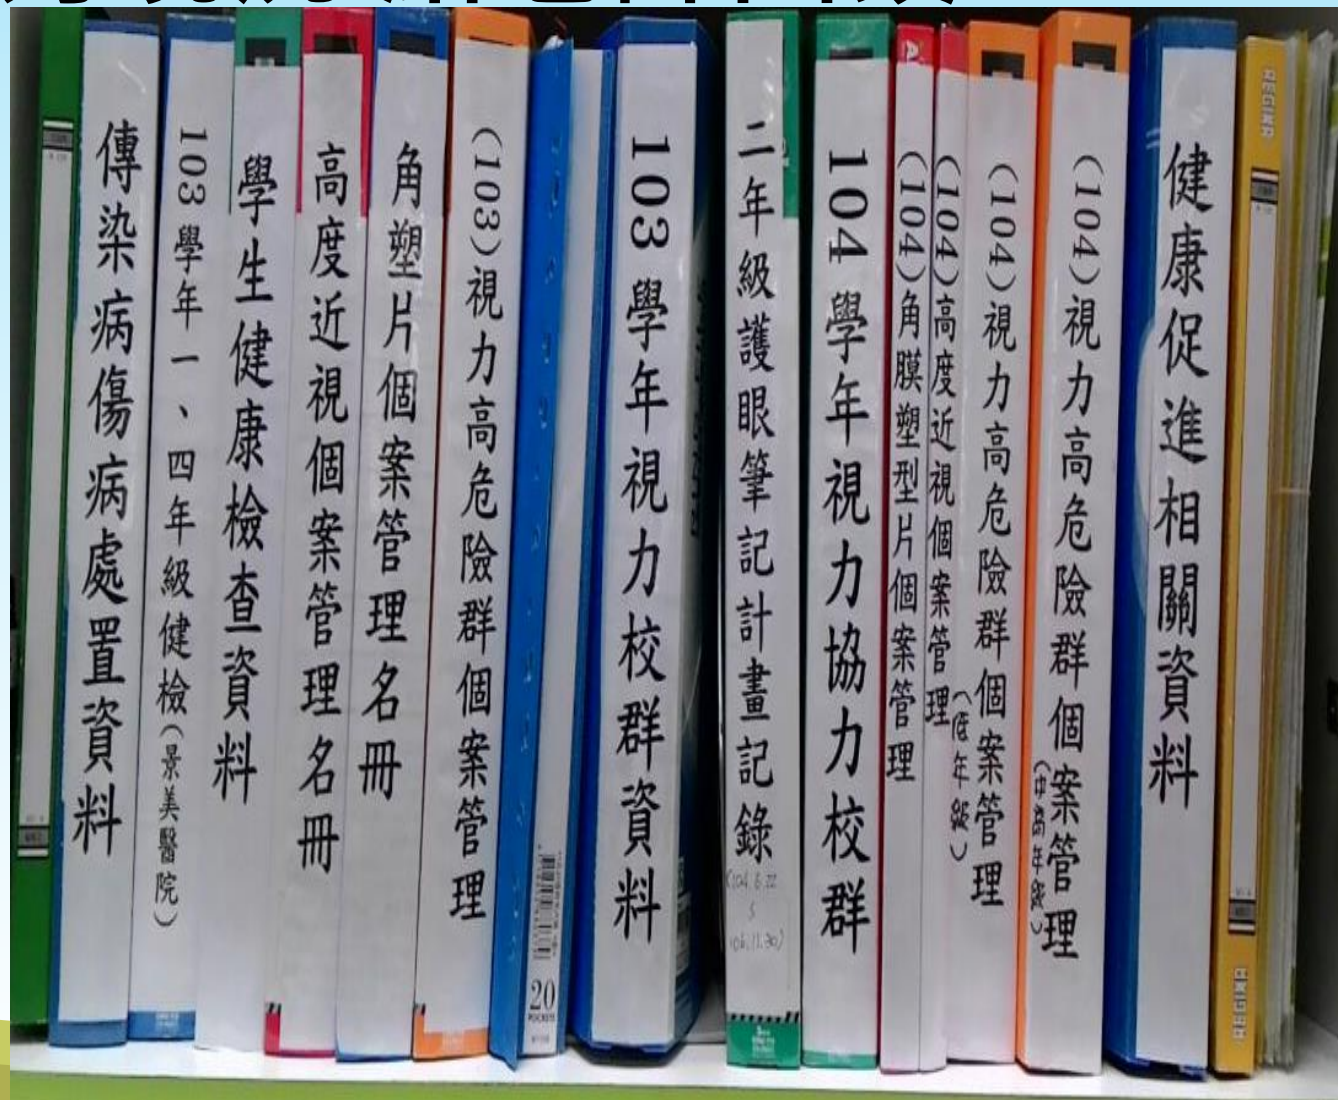 傳染病傷病處置資料
103學年一、四年級健檢(景美醫院)
學生健康檢查資料
高度近視個案管理名冊
角塑片個案管理名冊
(103)視力高危險群個案管理
20
POCKETS
103學年視力校群資料
二年級護眼筆記計畫記錄
104學年視力協力校群
(104)角膜塑型片個案管理
(104)高度近視個案管理
(104)視力高危險群個案管理
(低年級)
(104)視力高危險群個案管理
(中高年級)
健康促進相關資料